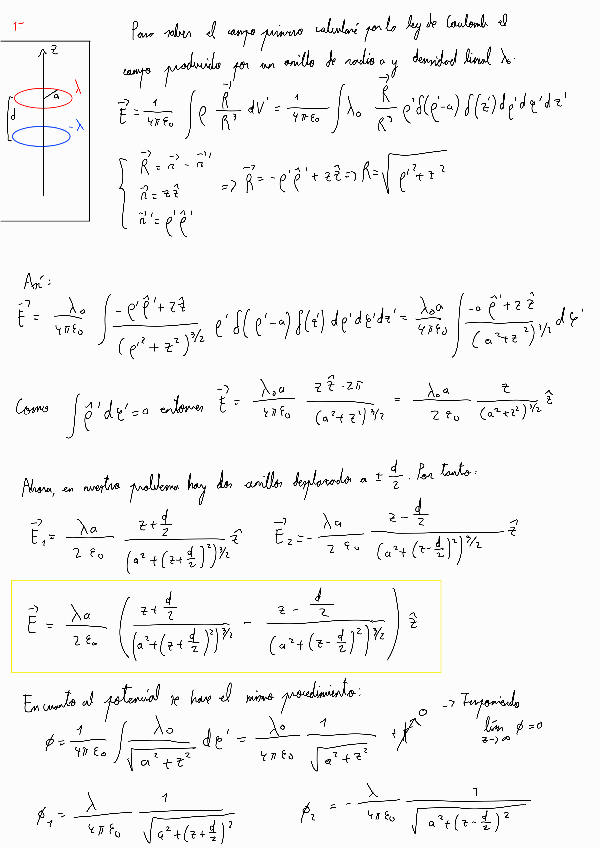 1-
z
a
λ
d
-λ
Para saber el campo primero calcularé por la ley de Coulomb el
campo producido por un anillo de radio a y densidad lineal λ₀.
E⃗ = 1/(4πε₀) ∫ ρ R⃗/R³ dV' = 1/(4πε₀) ∫ λ₀ R⃗/R³ ρ' δ(ρ'-a) δ(z') dρ' dφ' dz'
{ R⃗ = r⃗ - r⃗'
r⃗ = z ẑ => R⃗ = -ρ' ρ̂' + z ẑ => R = √(ρ'² + z²)
r⃗' = ρ' ρ̂'
Así:
E⃗ = λ₀/(4πε₀) ∫ (-ρ' ρ̂' + z ẑ)/(ρ'² + z²)^(3/2) ρ' δ(ρ'-a) δ(z') dρ' dφ' dz' = λ₀a/(4πε₀) ∫ (-a ρ̂' + z ẑ)/(a² + z²)^(3/2) dφ'
Como ∫ ρ̂' dφ' = 0 entonces E⃗ = λ₀a/(4πε₀) z ẑ · 2π/(a² + z²)^(3/2) = λ₀a/(2ε₀) z/(a² + z²)^(3/2) ẑ
Ahora, en nuestro problema hay dos anillos desplazados a ± d/2. Por tanto:
E⃗₁ = λa/(2ε₀) (z + d/2)/(a² + (z + d/2)²)^(3/2) ẑ E⃗₂ = - λa/(2ε₀) (z - d/2)/(a² + (z - d/2)²)^(3/2) ẑ
E⃗ = λa/(2ε₀) ( (z + d/2)/(a² + (z + d/2)²)^(3/2) - (z - d/2)/(a² + (z - d/2)²)^(3/2) ) ẑ
En cuanto al potencial se hace el mismo procedimiento:
ϕ = 1/(4πε₀) ∫ λ₀/√(a² + z²) dφ' = λ₀/(4πε₀) 1/√(a² + z²) + 0 -> Imponiendo
lím z→∞ ϕ = 0
ϕ₁ = λ/(4πε₀) 1/√(a² + (z + d/2)²) ϕ₂ = - λ/(4πε₀) 1/√(a² + (z - d/2)²)